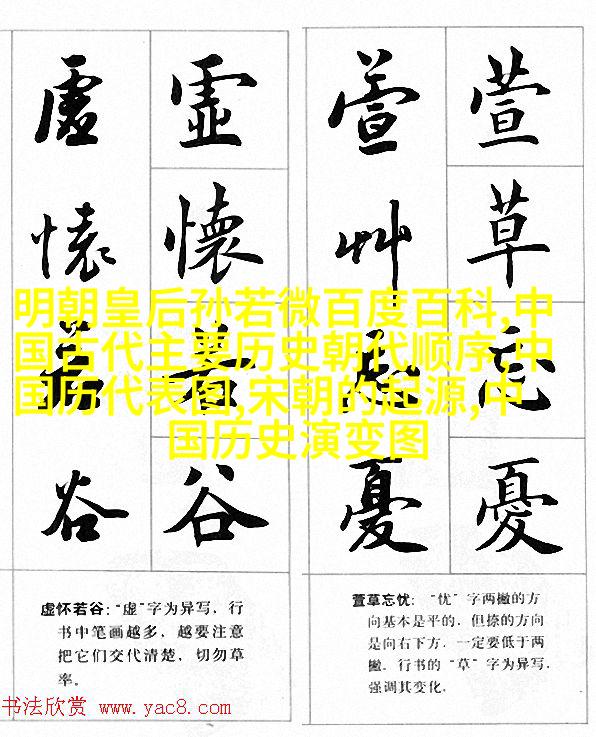 虛懷若谷
虛懷若谷
萱艸忘憂
萱草忘憂
明朝皇后孙若微百度百科,中
国古代主要历史朝代顺序,中
国历代表图,宋朝的起源,中
国历史演变图
虚怀若谷：“虚”字为异写，行
书中笔画越多，越要注意
把它们交代清楚，切勿草
率。
萱草忘忧：“忧”字两撇的方
向基本是平的，但捺的方向
是向右下方，一定要低于两
撇。行书的“草”字为异写，
强调其变化。
书法欣赏 www.yac8.com